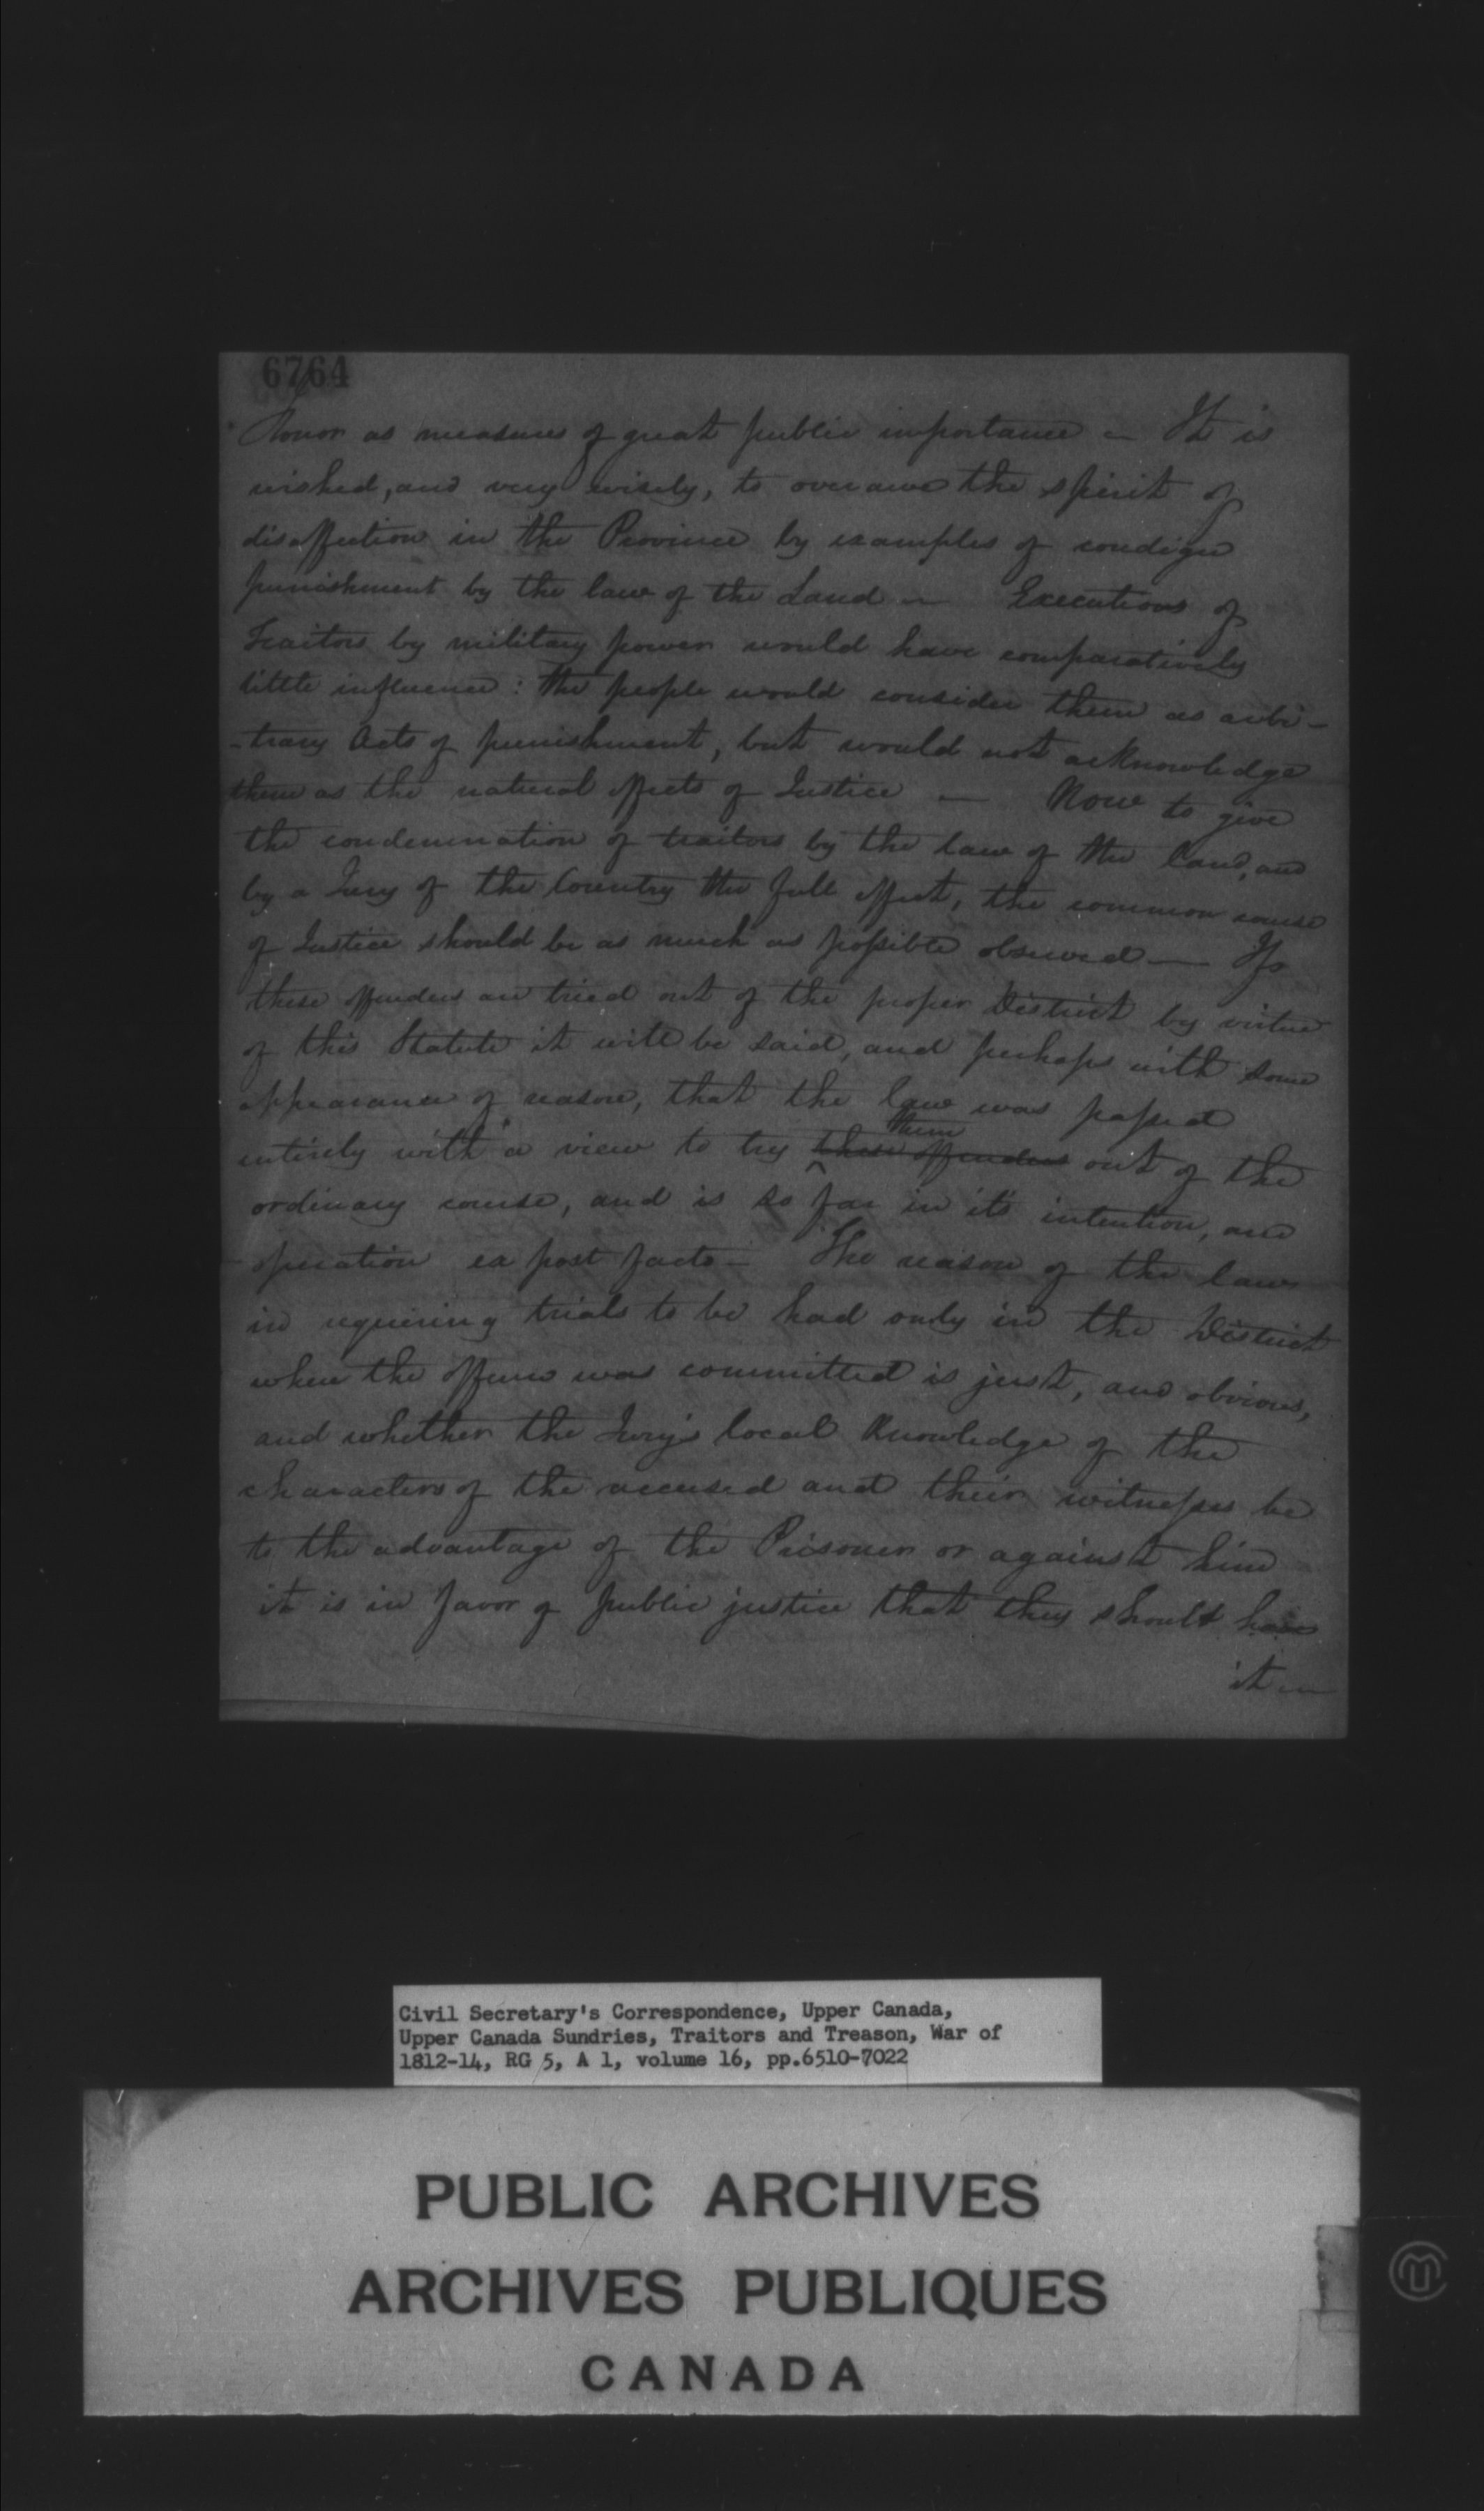 6764
Honor as measures of great public importance — It is
wished, and very wisely, to overawe the spirit of
disaffection in the Province by examples of condign
punishment by the law of the Land — Executions of
traitors by military power would have comparatively
little influence: the people would consider them as arbi-
-trary Acts of punishment, but would not acknowledge
them as the natural effects of Justice — Now to give
the condemnation of traitors by the law of the land, and
by a Jury of the Country the full effect, the common course
of Justice should be as much as possible observed — If
these offenders are tried out of the proper District by virtue
of this Statute it will be said, and perhaps with some
appearance of reason, that the law was passed
entirely with a view to try these offenders them out of the
ordinary course, and is so far in it's intention, and
operation ex post facto — The reason of the law
in requiring trials to be had only in the District
where the offence was committed is just, and obvious,
and whether the Jury's local knowledge of the
characters of the accused and their witnesses be
to the advantage of the Prisoner or against him
it is in favor of public justice that they should have
it —
Civil Secretary's Correspondence, Upper Canada,
Upper Canada Sundries, Traitors and Treason, War of
1812-14, RG 5, A 1, volume 16, pp.6510-7022
PUBLIC ARCHIVES
ARCHIVES PUBLIQUES
CANADA